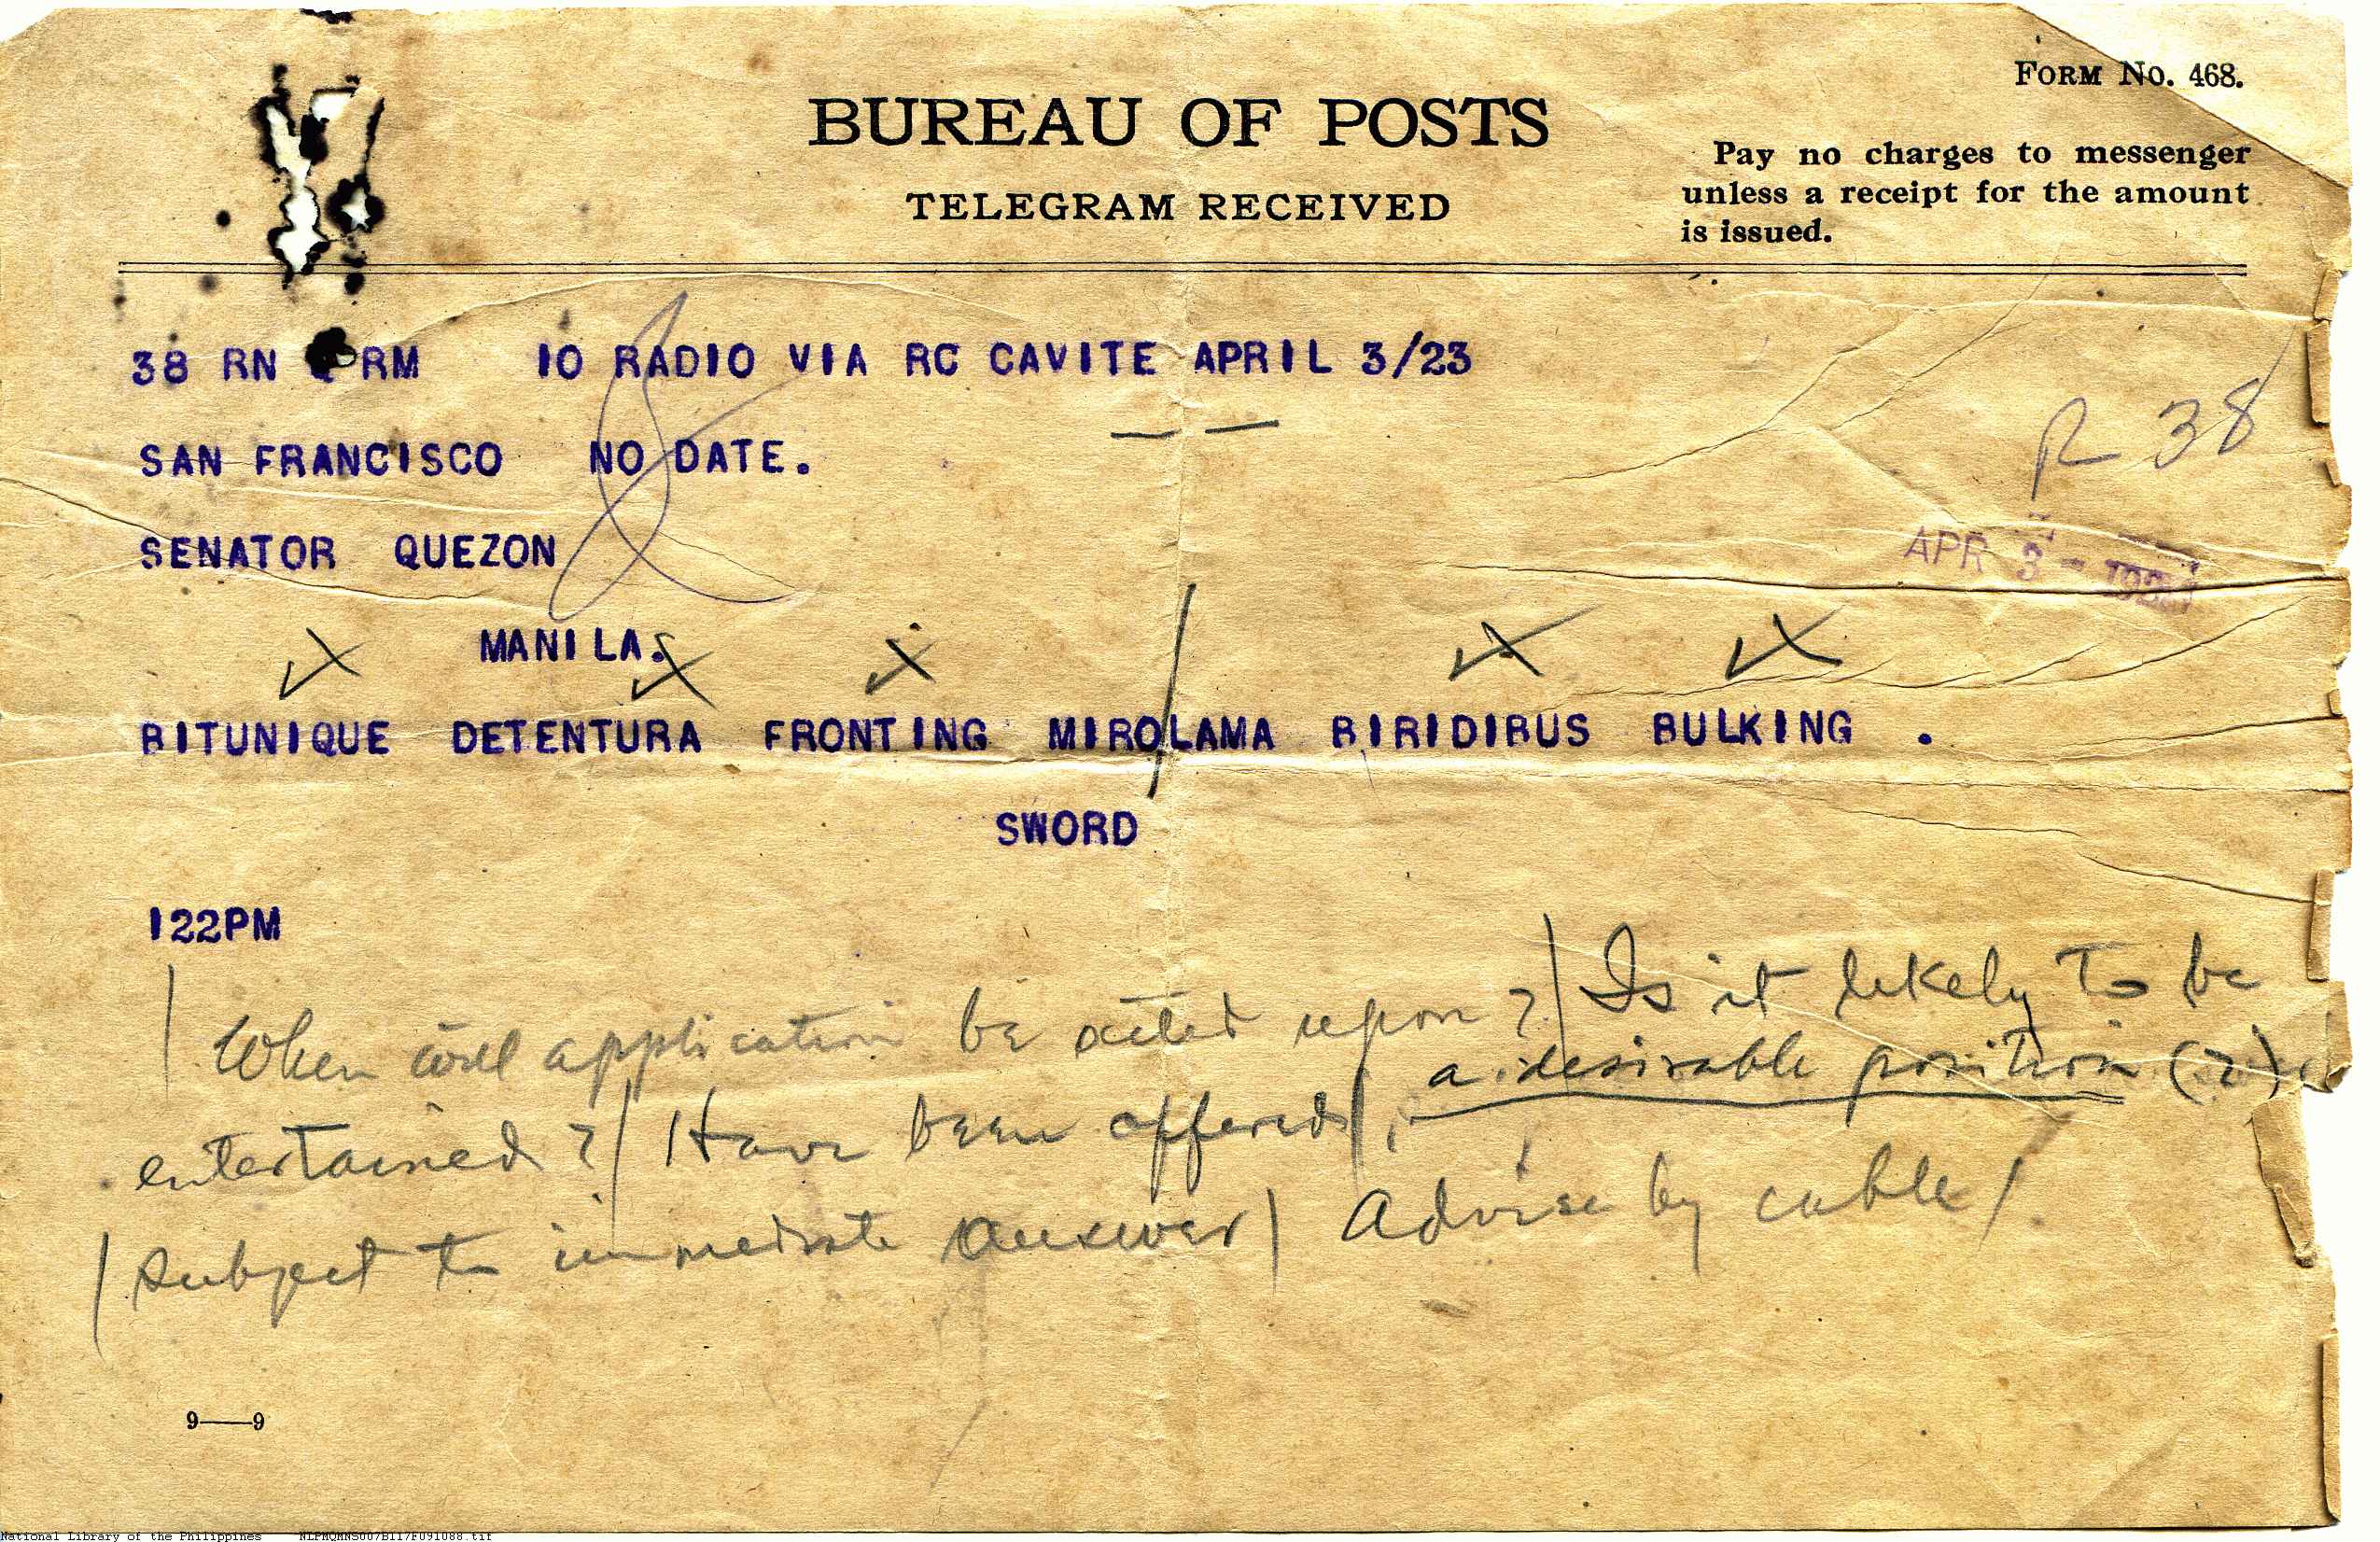 FORM NO. 468.
BUREAU OF POSTS
TELEGRAM RECEIVED
Pay no charges to messenger
unless a receipt for the amount
is issued.
38 RN RM 10 RADIO VIA RC CAVITE APRIL 3/23
R 38
SAN FRANCISCO NO DATE.
SENATOR QUEZON
APR 3 -
MANILA.
BITUNIQUE DETENTURA FRONTING MIROLAMA BIRIDIBUS BULKING .
SWORD
122PM
When will application be acted upon? / Is it likely to be
entertained? / Have been offered / a desirable position (?)
/ subject to immediate answer / Advise by cable /
9——9
National Library of the Philippines NLPMQMNS007B117F091088.tif